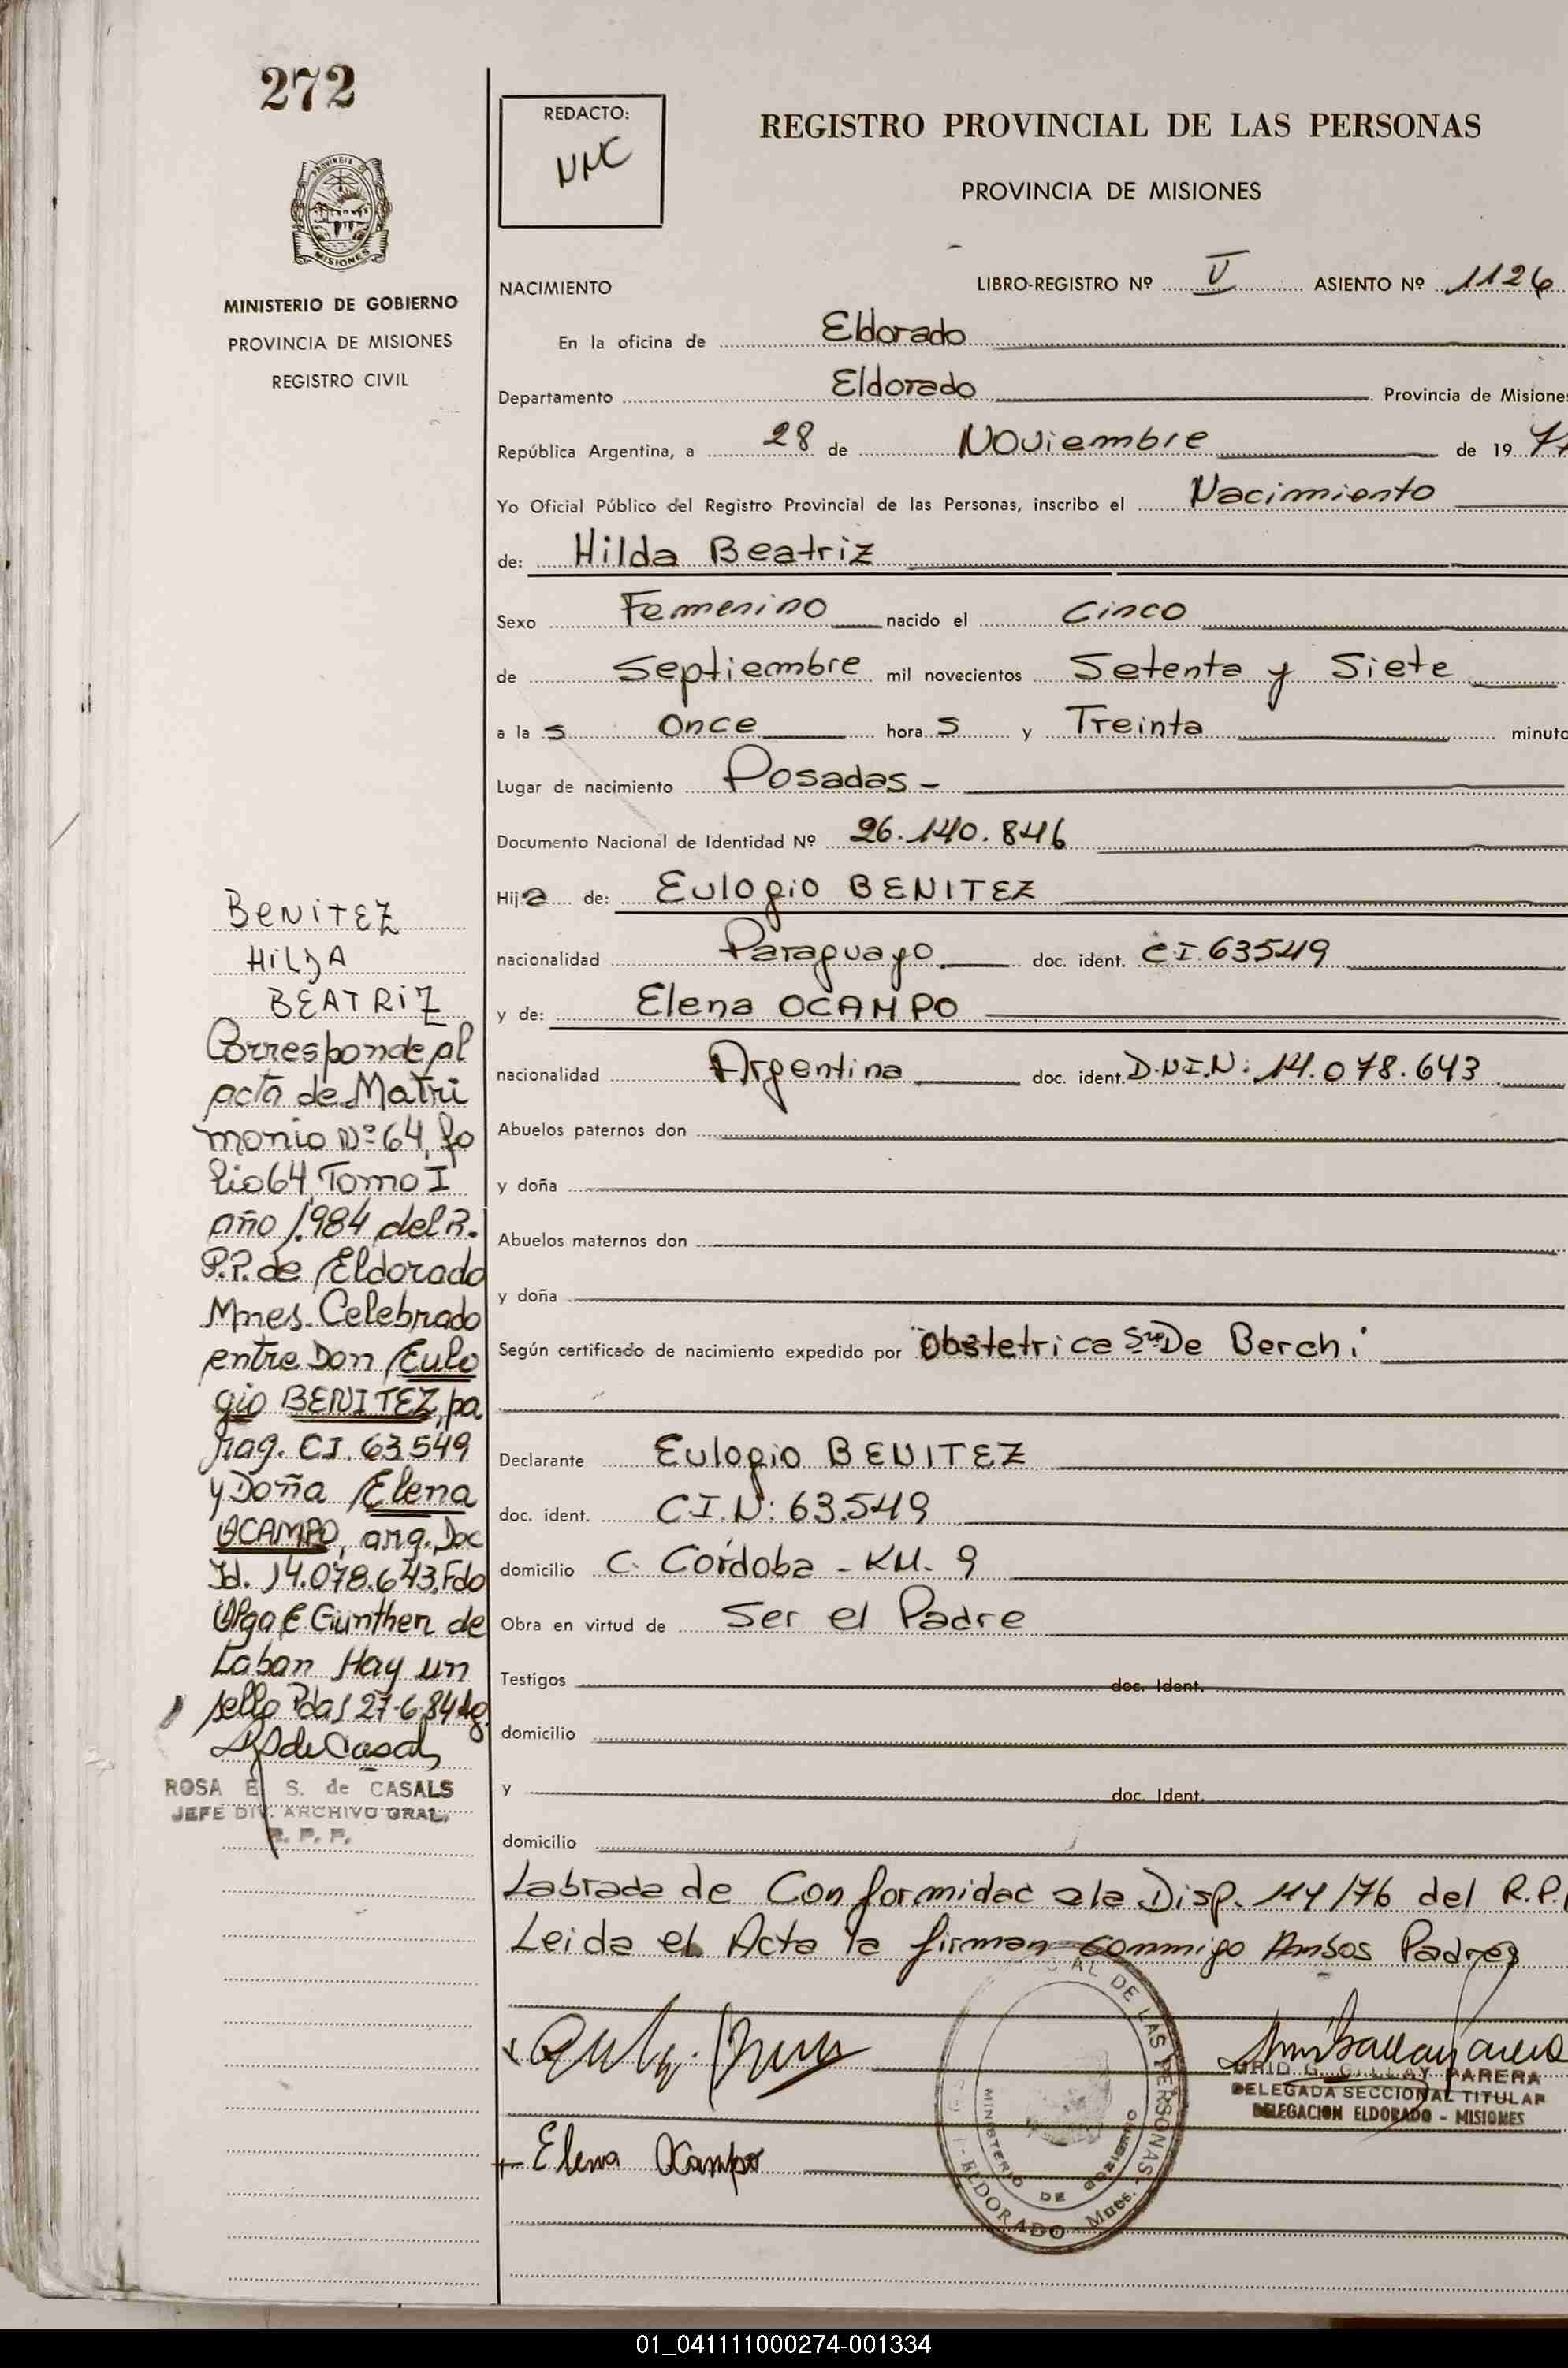 272
REDACTO:
NMC
REGISTRO PROVINCIAL DE LAS PERSONAS
PROVINCIA DE MISIONES
PROVINCIA DE
MISIONES
MINISTERIO DE GOBIERNO
PROVINCIA DE MISIONES
REGISTRO CIVIL
NACIMIENTO LIBRO-REGISTRO Nº V ASIENTO Nº 1126
En la oficina de Eldorado
Departamento Eldorado Provincia de Misiones
República Argentina, a 28 de Noviembre de 19
Yo Oficial Público del Registro Provincial de las Personas, inscribo el Nacimiento
de: Hilda Beatriz
Sexo Femenino nacido el Cinco
de Septiembre mil novecientos Setenta y Siete
a las Once horas y Treinta minuto
Lugar de nacimiento Posadas-
Documento Nacional de Identidad Nº 26.140.846
Hija de: Eulogio BENITEZ
nacionalidad Paraguayo doc. ident. C.I. 63549
y de: Elena OCAMPO
nacionalidad Argentina doc. ident. D.N.I.N: 14.078.643
Abuelos paternos don
y doña
Abuelos maternos don
y doña
Según certificado de nacimiento expedido por Obstetrica Sra De Berchi
Declarante Eulogio BENITEZ
doc. ident. C.I.N: 63.549
domicilio C. Córdoba - KM. 9
Obra en virtud de Ser el Padre
Testigos doc. Ident.
domicilio
y doc. Ident.
domicilio
Labrada de Conformidad a la Disp. 114/76 del R.P.
Leida el Acta la firman conmigo Ambos Padres
BENITEZ
HILDA
BEATRIZ
Corresponde al
acta de Matri
monio Nº 64, fo
lio 64 Tomo I
año 1.984 del R.
P.P. de Eldorado
Mnes. Celebrado
entre Don Eulo
gio BENITEZ, pa
rag. C.I. 63.549
y Doña Elena
OCAMPO, arg. Doc
Id. 14.078.643. Fdo
Olga E. Gunther de
Laban Hay un
sello Pdas 27-6-84
de Casals
ROSA E. S. de CASALS
JEFE DIV. ARCHIVO GRAL.
R. P. P.
Elena Ocampo
AL DE LAS PERSONAS
MINISTERIO DE GOBIERNO
ELDORADO - Mnes.
G. PARERA
DELEGADA SECCIONAL TITULAR
DELEGACION ELDORADO - MISIONES
01_041111000274-001334